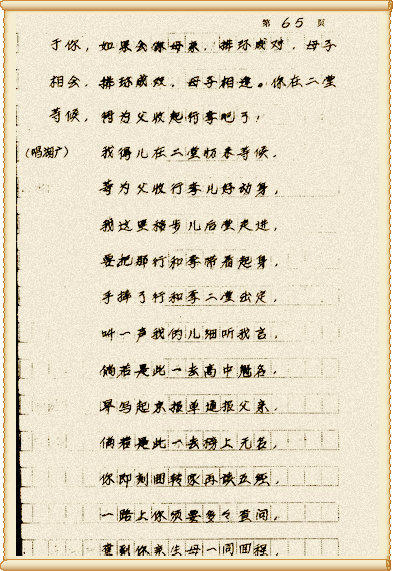 第 65 页
于你，如果会你母亲，排环成对，母子
相会，排环成双，母子相逢。你在二堂
等候，待为父收起行李吧了！
（唱湖广） 我得儿在二堂忙来等候，
等为父收行李儿好动身，
我这里移步儿后堂走进，
要把那行和李带着起身，
手捧了行和李二堂出定，
叫一声我的儿细听我言，
倘若是此一去高中魁名，
早写起京报单通报父亲，
倘若是此一去榜上无名，
你即刻回转家再读五经，
一路上你须要多々查问，
查到你亲生母一同回程，